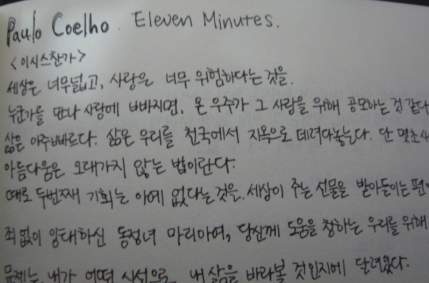 Paulo Coelho. Eleven Minutes.
<이시스찬가>
세상은 너무넓고, 사랑은 너무 위험하다는 것을.
누군가를 만나 사랑에 빠지면, 온 우주가 그 사랑을 위해 공모하는 것 같다
삶은 아주빠르다. 삶은 우리를 천국에서 지옥으로 데려다놓는다. 단 몇초
아름다움은 오래가지 않는 법이란다.
때로 두번째 기회는 아예 없다는 것을. 세상이 주는 선물을 받아들이는 편이
죄 없이 잉태하신 동정녀 마리아여, 당신께 도움을 청하는 우리를 위해
문제는, 내가 어떤 시선으로 내 삶을 바라볼 것인지에 달려있다.